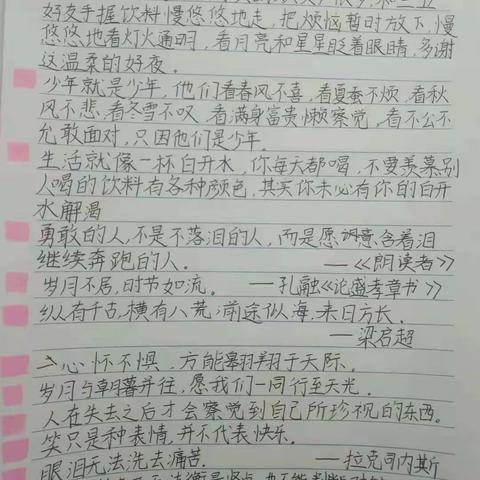 好友手握饮料慢悠悠地走,把烦恼暂时放下,慢
悠悠地看灯火通明,看月亮和星星眨着眼睛,多谢
这温柔的好夜。
少年就是少年,他们看春风不喜,看夏蝉不烦,看秋
风不悲,看冬雪不叹,看满身富贵懒察觉,看不公不
允敢面对,只因他们是少年。
生活就像一杯白开水,你每天都喝,不要羡慕别
人喝的饮料有各种颜色,其实你未必有你的白开
水解渴
勇敢的人,不是不落泪的人,而是愿意含着泪
继续奔跑的人。 —《朗读者》
岁月不居,时节如流。 —孔融《论盛孝章书》
纵有千古,横有八荒;前途似海,来日方长。
—梁启超
心怀不惧,方能翱翔于天际。
岁月与朝暮并往,愿我们一同行至天光。
人在失去之后才会察觉到自己所珍视的东西。
笑只是种表情,并不代表快乐。
眼泪无法洗去痛苦. —拉克司内斯